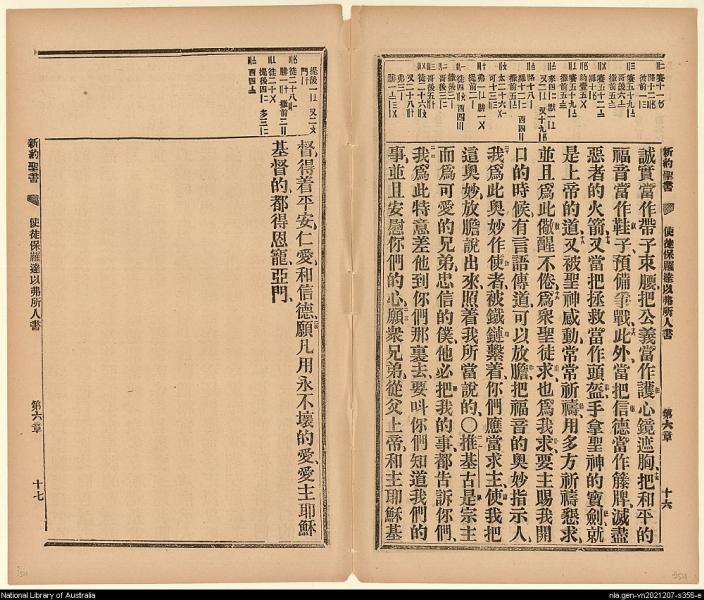 新約聖書
使徒保羅達以弗所人書
第六章
十六
誠實當作帶子束腰把公義當作護心鏡遮胸把和平的
福音當作鞋子預備爭戰此外當把信德當作籐牌滅盡
惡者的火箭又當把拯救當作頭盔手拿聖神的寶劍就
是上帝的道又被聖神感動常常祈禱用多方祈禱懇求
並且爲此儆醒不倦爲衆聖徒求也爲我求要主賜我開
口的時候有言語傳道可以放膽把福音的奧妙指示人
我爲此奧妙作使者被鐵鏈繫着你們應當求主使我把
這奧妙放膽說出來照着我所當說的〇推基古是宗主
而爲可愛的兄弟忠信的僕他必把我的事都告訴你們
我爲此特意差他到你們那裏去要叫你們知道我們的
事並且安慰你們的心願衆兄弟從父上帝和主耶穌基
督得着平安仁愛和信德願凡用永不壞的愛愛主耶穌
基督的都得恩寵亞門
新約聖書
使徒保羅達以弗所人書
第六章
十七
National Library of Australia
nla.gen-vn2021207-s356-e